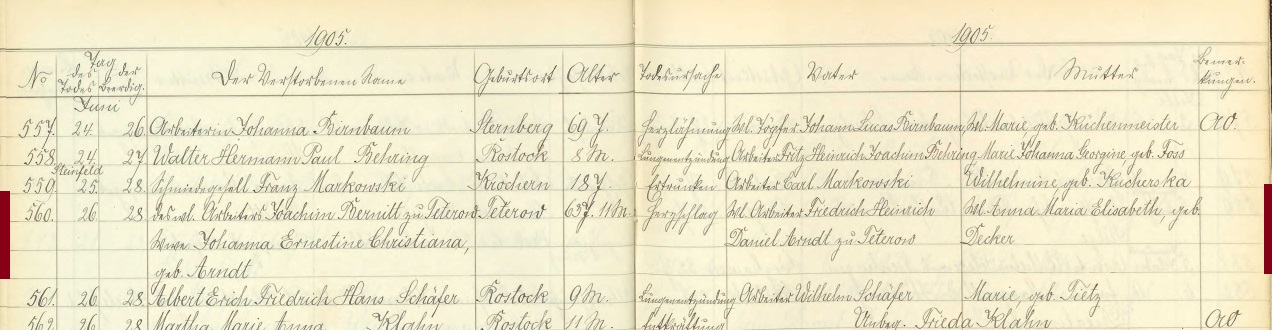 1905. 1905.
No Tag des Todes der Beerdig. Der Verstorbenen Name Geburtsort Alter Todesursache Vater Mutter Bemerkungen.
Juni
557. 24. 26. Arbeiterin Johanna Birnbaum Sternberg 69 J. Herzlähmung Wl. Töpfer Johann Lucas Birnbaum, Wl. Marie, geb. Küchenmeister ao.
558. 24. 27. Walter Hermann Paul Behring Rostock 8 M. Lungenentzündung Arbeiter Fritz Heinrich Joachim Behring Marie Johanna Georgine, geb. Foss
Steinfeld
559. 25. 28. Schmiedegesell Franz Markowski Kröchern 18 J. Ertrunken Arbeiter Carl Markowski Wilhelmine, geb. Kucherska
560. 26. 28. des wl. Arbeiters Joachim Bernitt zu Teterow Teterow 63 J. 11 M. Herzschlag Wl. Arbeiter Friedrich Heinrich Wl. Anna Maria Elisabeth, geb.
Wwe Johanna Ernestine Christiana, Daniel Arndt zu Teterow Decker
geb. Arndt
561. 26. 28. Albert Erich Friedrich Hans Schäfer Rostock 9 M. Lungenentzündung Arbeiter Wilhelm Schäfer Marie, geb. Tietz
562. 26. 28. Martha Marie Anna Klahn Rostock 11 M. Entkräftung Unbeg. Frieda Klahn ao